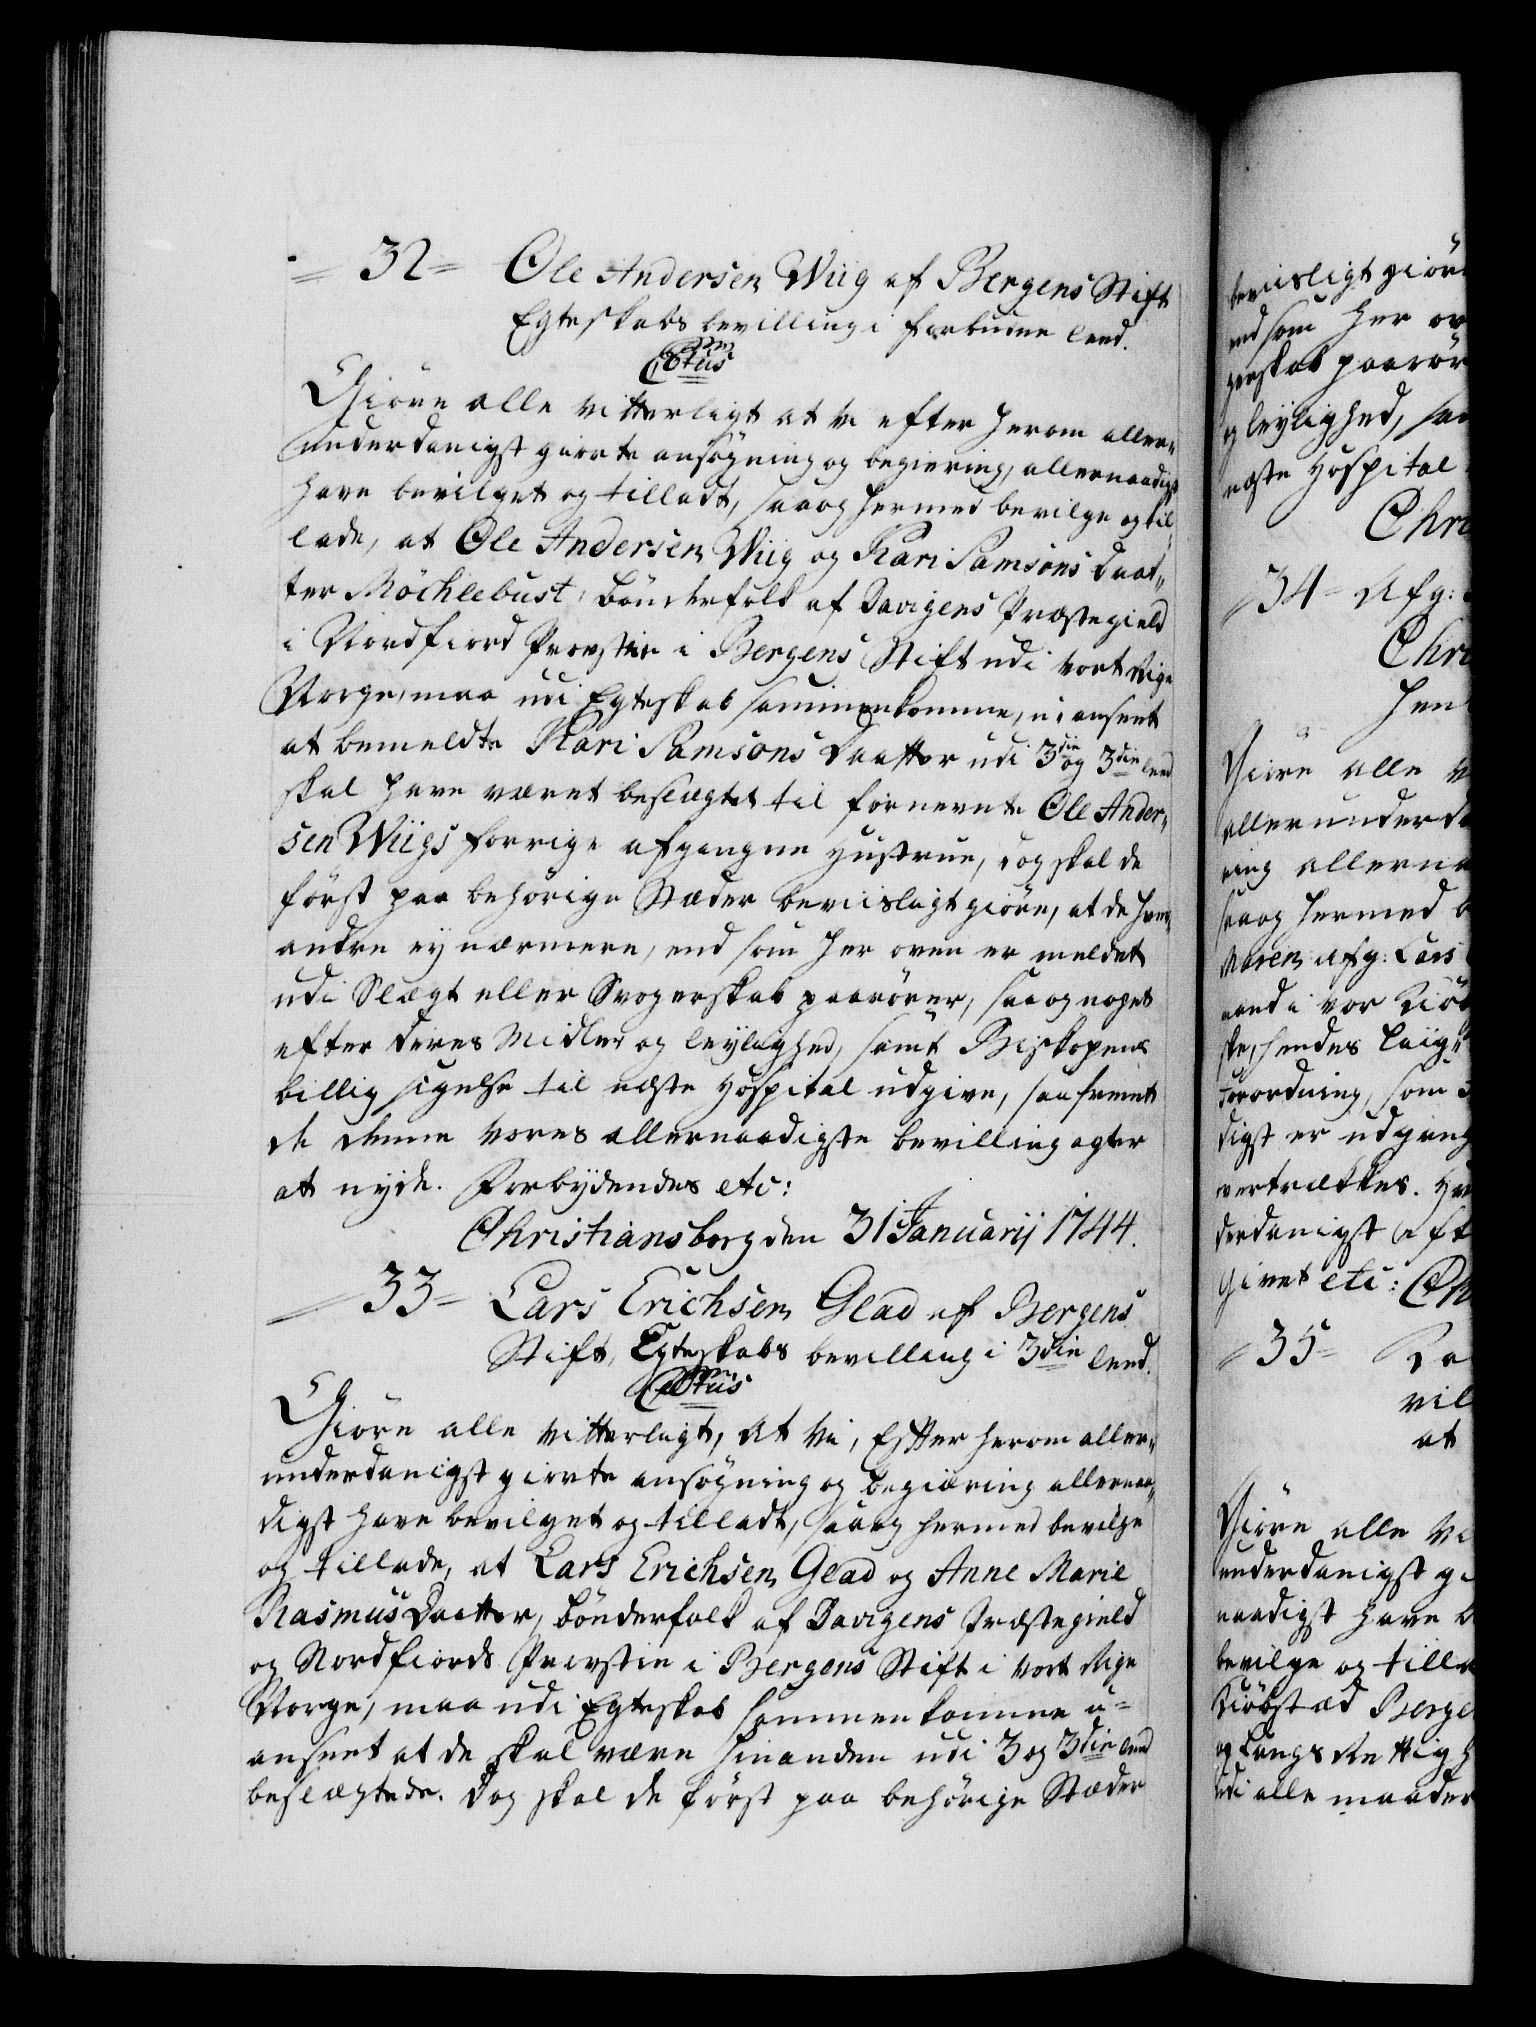 32 = Ole Andersen Wiig af Bergens Stift
Egteskabs bevilling i forbudne leed.
C6tus
Giøre alle vitterligt at vi efter herom aller„
underdanigst giorte ansøgning og begiering, allernaadigst
have bevilget og tilladt, saa og hermed bevilge og til„
lade, at Ole Andersen Wiig og Kari Samsons Daat„
ter Möchlebust, bönderfolk af Davigens Præstegield
i Nordfiord Provstie i Bergens Stift udi vort Rige
Norge, maa udi Egteskab sammenkomme, u-anseet
at bemeldte Kari Samsons Daatter udi 3die og 3die leed
skal have været beslægtet til fornevnte Ole Ander„
sen Wiigs forrige afgangne Hustrue, dog skal de
först paa behörige Stæder beviisligt giöre, at de hver„
andre ey nærmere, end som her oven er meldet
udi Slægt eller Svogerskab paarörer, saa og noget
efter deres Midler og leylighed, samt Biskopens
billig sigelse til næste Hospital udgive, saafremt
de denne vores allernaadigste bevilling agter
at nyde. Forbydendes etc:
Christiansborg den 31 Januarij 1744.
33 = Lars Erichsen Glad af Bergens
Stift, Egteskabs bevilling i 3die leed.
C6tus
Giöre alle vitterligt, At Vi, Efter herom aller„
underdanigst giorte ansögning og begiæring allernaa„
digst have bevilget og tilladt, saa og hermed bevilge
og tillade, at Lars Erichsen Glad og Anne Marie
Rasmus Daatter, bönderfolk af Davigens Præstegield
og Nordfiords Provstie i Bergens Stift i vort Rige
Norge, maa udi Egteskab sammenkomme u=
anseet at de skal være hinanden udi 3 og 3die leed
beslægtede. Dog skal de först paa behörige Stæder
beviisligt giör
end som her ov
gerskab paarör
og leylighed, sam
næste Hospital
Chri
34 = Afg:
Chri
hen
Giöre alle v
allerunderda
ring allerna
saa og hermed b
Maren afg: Lars
vor Kiöb
hendes
Forordning, som
digst er udgang
vertrækkes. Hv
derdanigst eft
givet etc: Ch
35 = Ra
vil
at
Giöre alle Vi
underdanigst gi
naadigst have b
bevilge og tilla
Kiöbstæd Berge
og Laugs Rettigh
udi alle maader